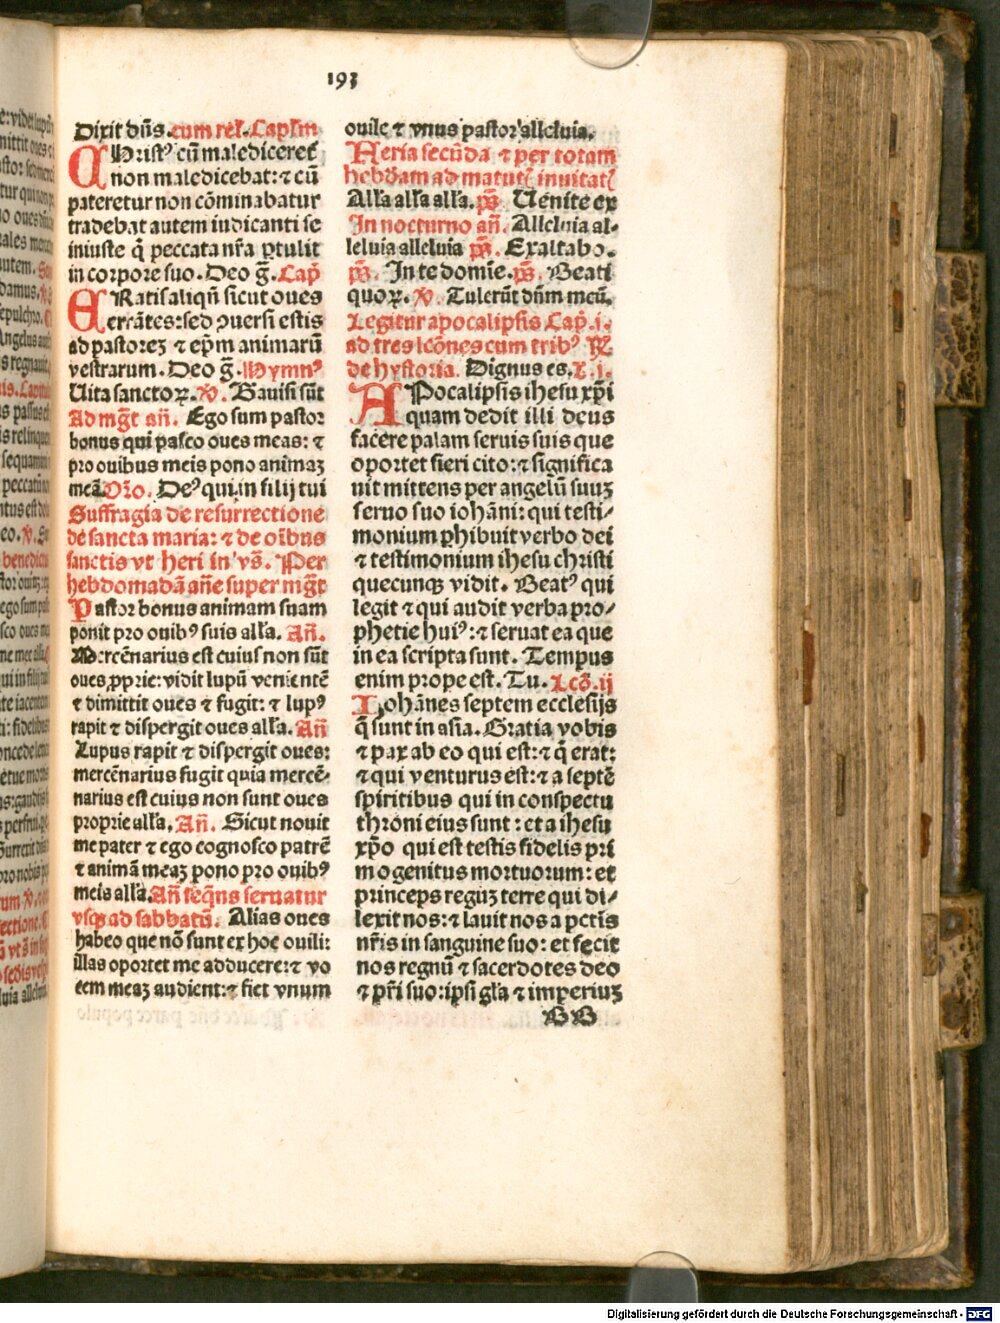 193
Dixit dn̄s. cum rel̄. Capl̄m
CHristꝰ cū malediceret̄
non maledicebat: ⁊ cū
pateretur non cōminabatur
tradebat autem iudicanti se
iniuste q̄ peccata nr̄a ꝑtulit
in corpore suo. Deo g̅. Cap̄
ERatis aliqn̄ sicut oues
errātes: sed ꝯuersi estis
ad pastoreꝫ ⁊ ep̄m animarū
vestrarum. Deo g̅. Hymnꝰ
Uita sanctoꝝ. ℣. Gauisi sūt
Ad mḡt an̄. Ego sum pastor
bonus qui pasco oues meas: ⁊
pro ouibus meis pono animaꝫ
meā Or̄o. Deꝰ qui in filij tui
Suffragia de resurrectione
de sancta maria: ⁊ de oībus
sanctis vt heri in vs̄. Per
hebdomadā an̄e super mḡt
Pastor bonus animam suam
ponit pro ouibꝰ suis all̄a. An̄.
Mercēnarius est cuius non sūt
oues ꝓprie: vidit lupū venientē
⁊ dimittit oues ⁊ fugit: ⁊ lupꝰ
rapit ⁊ dispergit oues all̄a. An̄
Lupus rapit ⁊ dispergit oues:
mercēnarius fugit quia mercē-
narius est cuius non sunt oues
proprie all̄a. An̄. Sicut nouit
me pater ⁊ ego cognosco patrē
⁊ animā meaꝫ pono pro ouibꝰ
meis all̄a. An̄ seq̄ns seruatur
vsqꝫ ad sabbatū. Alias oues
habeo que nō sunt ex hoc ouili:
illas oportet me adducere: ⁊ vo
cem meaꝫ audient: ⁊ fiet vnum
ouile ⁊ vnus pastor alleluia.
Feria secūda ⁊ per totam
hebdōam ad matut̄ inuitat̄
All̄a all̄a all̄a. ps̄. Uenite ex
In nocturno an̄. Alleluia al-
leluia alleluia ps̄. Exaltabo.
ps̄. In te domīe. ps̄. Beati
quoꝝ. ℣. Tulerūt dn̄m meū.
Legitur apocalipsis Cap̄. i.
ad tres lcōnes cum tribꝰ ℟.
de hystoria. Dignus es. L. i.
APocalipsis ihesu xp̄i
quam dedit illi deus
facere palam seruis suis que
oportet fieri cito: ⁊ significa
uit mittens per angelū suuꝫ
seruo suo iohāni: qui testi-
monium phibuit verbo dei
⁊ testimonium ihesu christi
quecunqꝫ vidit. Beatꝰ qui
legit ⁊ qui audit verba pro-
phetie huiꝰ: ⁊ seruat ea que
in ea scripta sunt. Tempus
enim prope est. Tu. Lcō. ij
Iohānes septem ecclesijs
q̄ sunt in asia. Gratia vobis
⁊ pax ab eo qui est: ⁊ q̄ erat:
⁊ qui venturus est: ⁊ a septē
spiritibus qui in conspectu
throni eius sunt: et a ihesu
xp̄o qui est testis fidelis pri
mogenitus mortuorum: et
princeps reguꝫ terre qui di-
lexit nos: ⁊ lauit nos a pctīs
nr̄is in sanguine suo: et fecit
nos regnū ⁊ sacerdotes deo
⁊ pr̄i suo: ipsi gl̄a ⁊ imperiuꝫ
BB
Digitalisierung gefördert durch die Deutsche Forschungsgemeinschaft - DFG